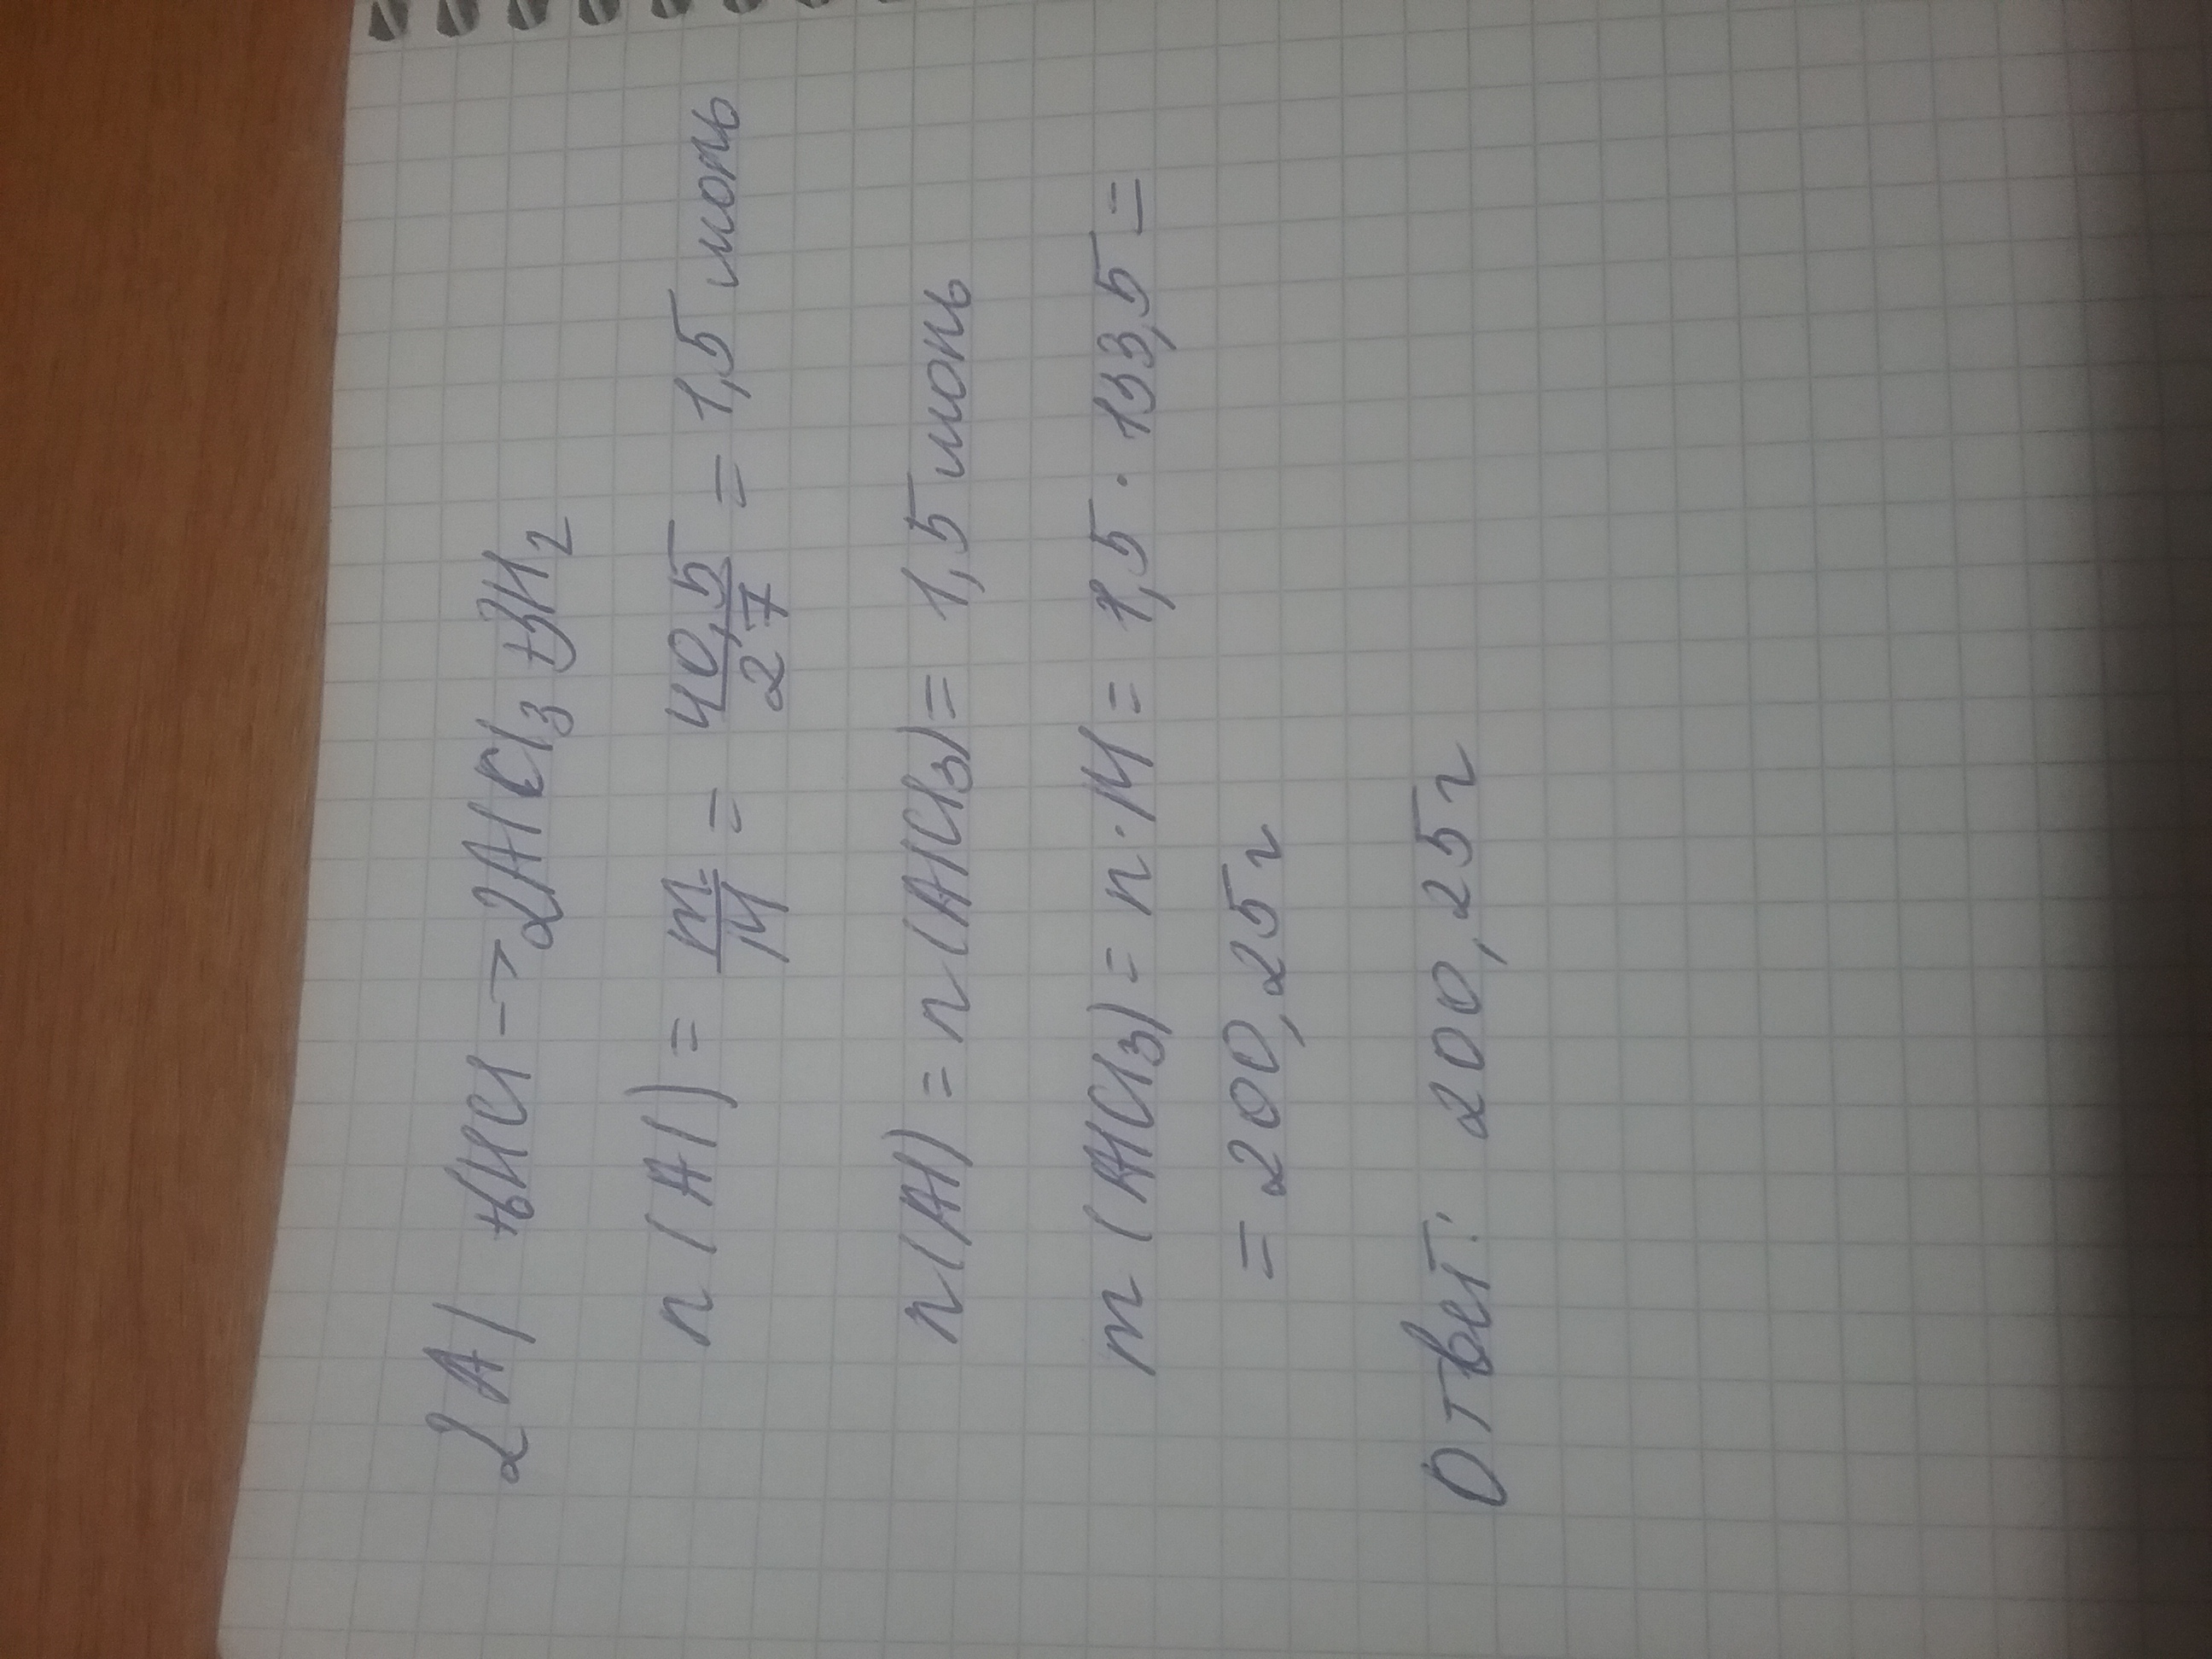 2Al +6HCl → 2AlCl₃ +3H₂
n (Al) = m/M = 40,5/27 = 1,5 моль
n(Al) = n(AlCl₃) = 1,5 моль
m (AlCl₃) = n·M = 1,5 · 133,5 =
= 200,25 г
Ответ: 200,25 г